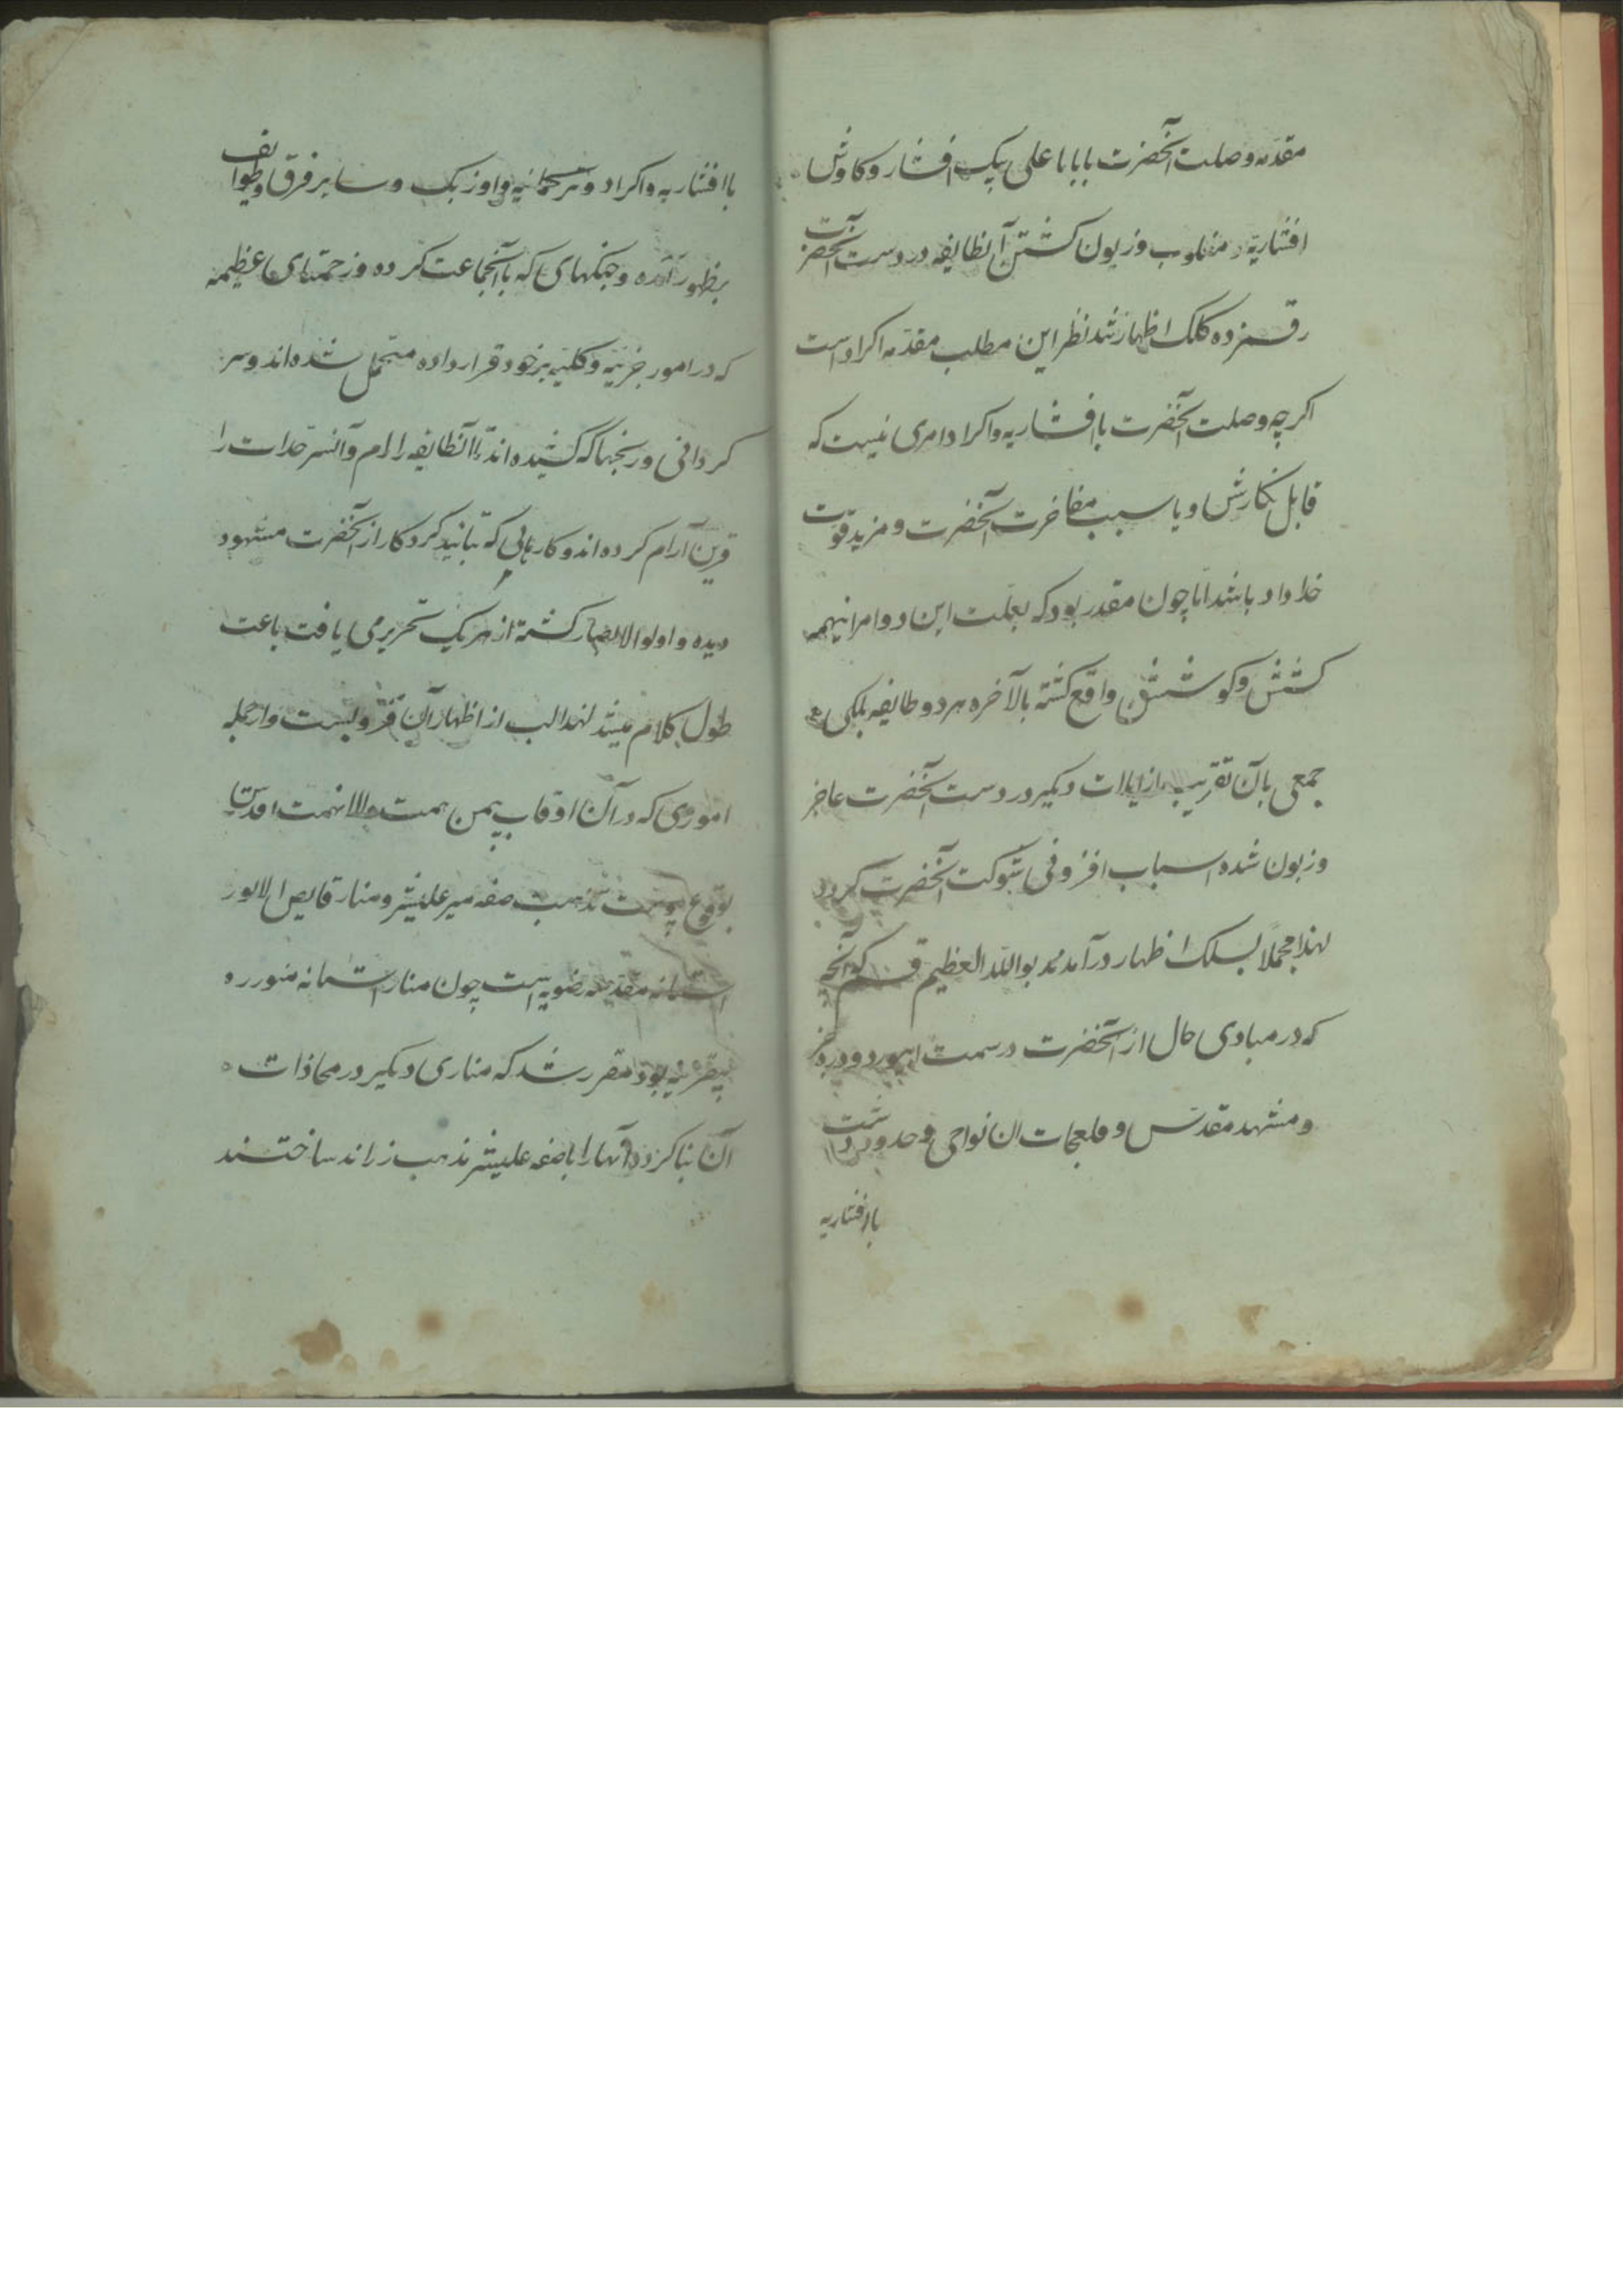 مقدمه وصلت آنحضرت با بابا علی بیک افشار و کاوش
افشاریه و مغلوب و زبون کشتن آنطایفه در دست آنحضرت
رقمزده کلک اظهار شد نظیر این مطلب مقدمه اکراد است
اکر چه وصلت آنحضرت با افشاریه و اکراد امری نیست که
قابل نکارش و یا سبب مفاخرت آنحضرت و مزید قوت
خداداد باشد اما چون مقدر بود که بعلت این دو امر اینهمه
کشش و کوشش واقع کشته بالآخره هر دو طایفه بلکه
جمعی بآن تقریب از ایلات دیکر در دست آنحضرت عاجز
و زبون شده اسباب افزونی شوکت آنحضرت کردد
لهذا مجملا بسلک اظهار درآمد والله العظیم قسم که آنچه
که در مبادی حال از آنحضرت در سمت ابیورد و دره جز
و مشهد مقدس و قلعجات ان نواحی و حدود دشت
باافشاریه
باافشاریه و اکراد و ترکمانیه و اوزبک و سایر فرق و طوایف
بظهور آمده و جنکهای که با آنجماعت کرده و زحمتهای عظیمه
که در امور جزئیه و کلیه بر خود قرار داده متحمل شده اند و سر
کردانی و رنجها که کشیده اند تا آنطایفه را رام و آن سرحدات را
قرین آرام کرده اند و کارهایی که بتایید کردکار از آنحضرت مشهود
دیده و اولوالابصار کشته از هر یک تحریر می یافت باعث
طول کلام میشد لهذا لب از اظهار آن فرو بست و از جمله
اموری که در آن اوقات بیمن همت والا نهمت اقدس
بوقوع پیوست تذهیب صفه میر علیشیر و منار فایض الانور
آستانه مقدسه رضویه است چون منار آستانه منوره
بیقرینه بود مقرر شد که مناری دیکر در محاذات
آن بنا کرده آنها را با صفه علیشیر مذهب زراند ساختند